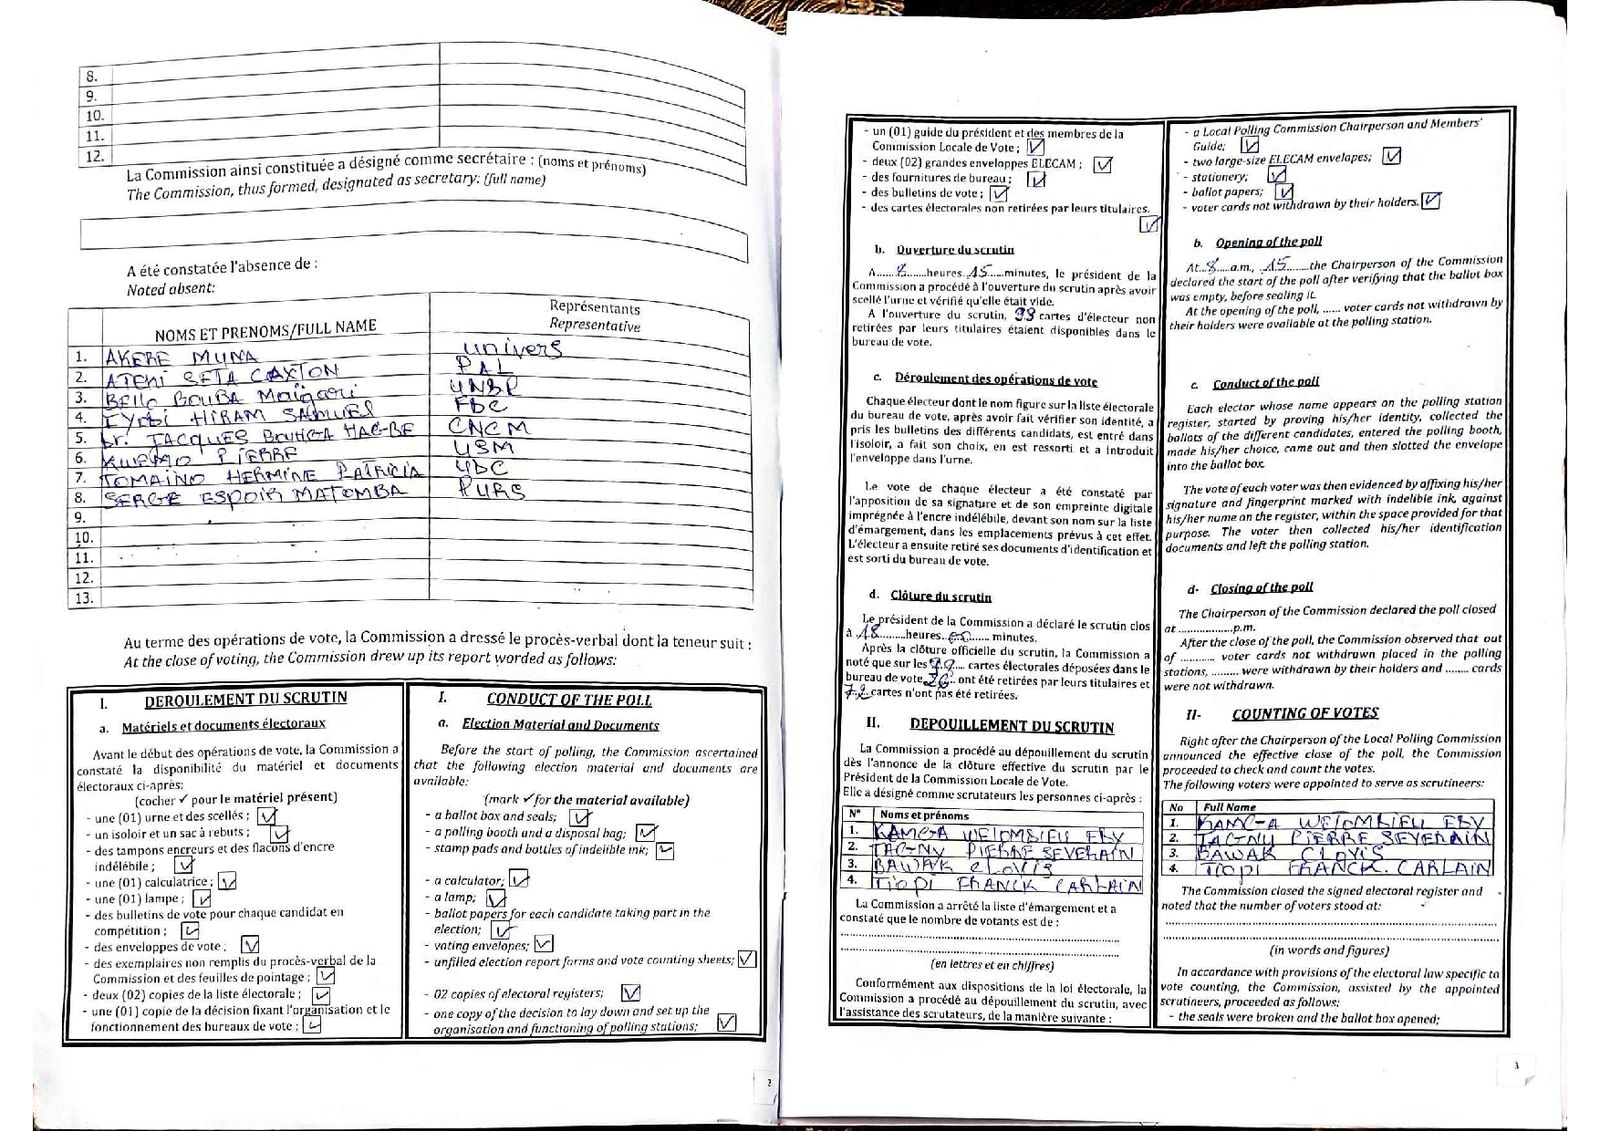 8.
9.
10.
11.
12.
La Commission ainsi constituée a désigné comme secrétaire : (noms et prénoms)
The Commission, thus formed, designated as secretary: (full name)
A été constatée l'absence de :
Noted absent:
NOMS ET PRENOMS/FULL NAME
Représentants
Representative
1. AKERE MUNA univers
2. ATEKI SETA CAXTON PAL
3. Bello BOUBA Maïgari UNDP
4. IYODI HIRAM SAMUEL FDC
5. Dr. JACQUES BOUHGA HAGBE CNCM
6. KWEMO PIERRE USM
7. TOMAINO HERMINE PATRICIA UDC
8. SERGE ESPOIR MATOMBA PURS
9.
10.
11.
12.
13.
Au terme des opérations de vote, la Commission a dressé le procès-verbal dont la teneur suit :
At the close of voting, the Commission drew up its report worded as follows:
I. DEROULEMENT DU SCRUTIN
a. Matériels et documents électoraux
Avant le début des opérations de vote, la Commission a
constaté la disponibilité du matériel et documents
électoraux ci-après:
(cocher ✓ pour le matériel présent)
- une (01) urne et des scellés ; ☑
- un isoloir et un sac à rebuts ; ☑
- des tampons encreurs et des flacons d'encre
indélébile ; ☑
- une (01) calculatrice ; ☑
- une (01) lampe ; ☑
- des bulletins de vote pour chaque candidat en
compétition ; ☑
- des enveloppes de vote ; ☑
- des exemplaires non remplis du procès-verbal de la
Commission et des feuilles de pointage ; ☑
- deux (02) copies de la liste électorale ; ☑
- une (01) copie de la décision fixant l'organisation et le
fonctionnement des bureaux de vote ; ☑
I. CONDUCT OF THE POLL
a. Election Material and Documents
Before the start of polling, the Commission ascertained
that the following election material and documents are
available:
(mark ✓ for the material available)
- a ballot box and seals; ☑
- a polling booth and a disposal bag; ☑
- stamp pads and bottles of indelible ink; ☑
- a calculator; ☑
- a lamp; ☑
- ballot papers for each candidate taking part in the
election; ☑
- voting envelopes; ☑
- unfilled election report forms and vote counting sheets; ☑
- 02 copies of electoral registers; ☑
- one copy of the decision to lay down and set up the
organisation and functioning of polling stations; ☑
2
- un (01) guide du président et des membres de la
Commission Locale de Vote ; ☑
- deux (02) grandes enveloppes ELECAM ; ☑
- des fournitures de bureau ; ☑
- des bulletins de vote ; ☑
- des cartes électorales non retirées par leurs titulaires.
☑
b. Ouverture du scrutin
A......8......heures..15.....minutes, le président de la
Commission a procédé à l'ouverture du scrutin après avoir
scellé l'urne et vérifié qu'elle était vide.
A l'ouverture du scrutin, 99 cartes d'électeur non
retirées par leurs titulaires étaient disponibles dans le
bureau de vote.
c. Déroulement des opérations de vote
Chaque électeur dont le nom figure sur la liste électorale
du bureau de vote, après avoir fait vérifier son identité, a
pris les bulletins des différents candidats, est entré dans
l'isoloir, a fait son choix, en est ressorti et a introduit
l'enveloppe dans l'urne.
Le vote de chaque électeur a été constaté par
l'apposition de sa signature et de son empreinte digitale
imprégnée à l'encre indélébile, devant son nom sur la liste
d'émargement, dans les emplacements prévus à cet effet.
L'électeur a ensuite retiré ses documents d'identification et
est sorti du bureau de vote.
d. Clôture du scrutin
Le président de la Commission a déclaré le scrutin clos
à 18.........heures..00...... minutes.
Après la clôture officielle du scrutin, la Commission a
noté que sur les .... cartes électorales déposées dans le
bureau de vote .... ont été retirées par leurs titulaires et
72 cartes n'ont pas été retirées.
II. DEPOUILLEMENT DU SCRUTIN
La Commission a procédé au dépouillement du scrutin
dès l'annonce de la clôture effective du scrutin par le
Président de la Commission Locale de Vote.
Elle a désigné comme scrutateurs les personnes ci-après :
N° Noms et prénoms
1. KAMGA WELOMBIEU
2. TAGNY PIERRE SEVERAIN
3. BAWAK CLOVIS
4. TIOPI FRANCK CARLAIN
La Commission a arrêté la liste d'émargement et a
constaté que le nombre de votants est de :
(en lettres et en chiffres)
Conformément aux dispositions de la loi électorale, la
Commission a procédé au dépouillement du scrutin, avec
l'assistance des scrutateurs, de la manière suivante :
- a Local Polling Commission Chairperson and Members'
Guide; ☑
- two large-size ELECAM envelopes; ☑
- stationery; ☑
- ballot papers; ☑
- voter cards not withdrawn by their holders. ☑
b. Opening of the poll
At...8.....a.m., ..15........the Chairperson of the Commission
declared the start of the poll after verifying that the ballot box
was empty, before sealing it.
At the opening of the poll, ...... voter cards not withdrawn by
their holders were available at the polling station.
c. Conduct of the poll
Each elector whose name appears on the polling station
register, started by proving his/her identity, collected the
ballots of the different candidates, entered the polling booth,
made his/her choice, came out and then slotted the envelope
into the ballot box.
The vote of each voter was then evidenced by affixing his/her
signature and fingerprint marked with indelible ink, against
his/her name on the register, within the space provided for that
purpose. The voter then collected his/her identification
documents and left the polling station.
d- Closing of the poll
The Chairperson of the Commission declared the poll closed
at ..................p.m.
After the close of the poll, the Commission observed that out
of ........... voter cards not withdrawn placed in the polling
stations, ......... were withdrawn by their holders and ........ cards
were not withdrawn.
II- COUNTING OF VOTES
Right after the Chairperson of the Local Polling Commission
announced the effective close of the poll, the Commission
proceeded to check and count the votes.
The following voters were appointed to serve as scrutineers:
No Full Name
1. KAMGA WELOMBIEU
2. TAGNY PIERRE SEVERAIN
3. BAWAK CLOVIS
4. TIOPI FRANCK CARLAIN
The Commission closed the signed electoral register and
noted that the number of voters stood at:
(in words and figures)
In accordance with provisions of the electoral law specific to
vote counting, the Commission, assisted by the appointed
scrutineers, proceeded as follows:
- the seals were broken and the ballot box opened;
3